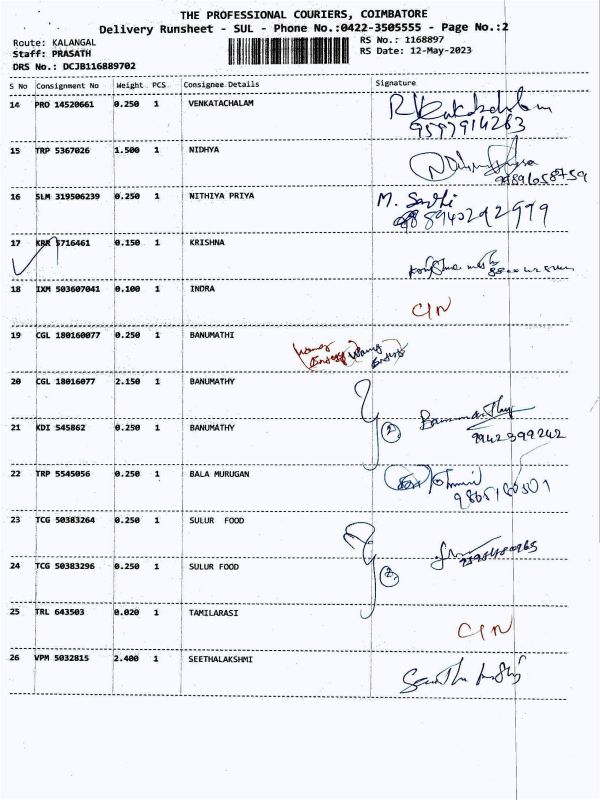 THE PROFESSIONAL COURIERS, COIMBATORE
Delivery Runsheet - SUL - Phone No.:0422-3505555 - Page No.:2
Route: KALANGAL
Staff: PRASATH
DRS No.: DCJB116889702
RS No.: 1168897
RS Date: 12-May-2023
S No Consignment No Weight PCS Consignee Details Signature
14 PRO 14520661 0.250 1 VENKATACHALAM
9597914263
15 TRP 5367026 1.500 1 NIDHYA
16 SLM 319506239 0.250 1 NITHIYA PRIYA M.
8940292979
17 KRR 5716461 0.150 1 KRISHNA
18 IXM 503607041 0.100 1 INDRA CIN
19 CGL 180160077 0.250 1 BANUMATHI
20 CGL 18016077 2.150 1 BANUMATHY
21 KDI 545862 0.250 1 BANUMATHY 2 Banumathy
9942399242
22 TRP 5545056 0.250 1 BALA MURUGAN
23 TCG 50383264 0.250 1 SULUR FOOD
24 TCG 50383296 0.250 1 SULUR FOOD 2
25 TRL 643503 0.020 1 TAMILARASI CIN
26 VPM 5032815 2.400 1 SEETHALAKSHMI